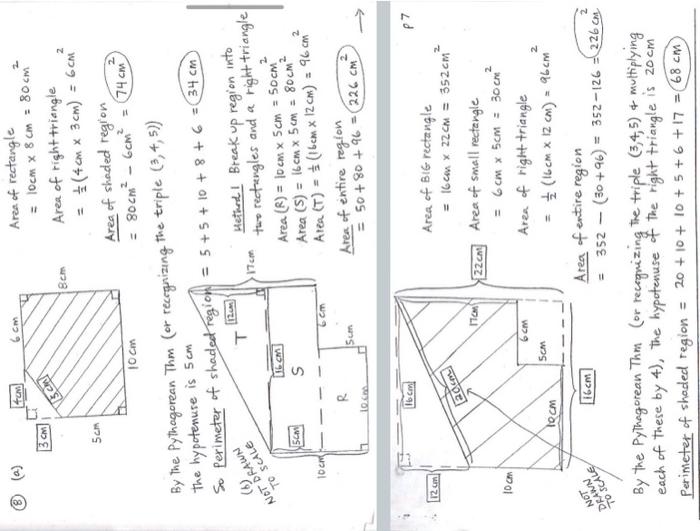 ⑧ (a)
4cm
6 cm
3 cm
5cm
5 cm
8cm
10 cm
Area of rectangle
= 10cm x 8cm = 80cm²
Area of right triangle
= ½(4cm x 3cm) = 6cm²
Area of shaded region
= 80cm² - 6cm² = 74cm²
By the Pythagorean Thm (or recognizing the triple (3,4,5))
the hypotenuse is 5cm
So Perimeter of shaded region = 5+5+10+8+6 = 34 cm
(b)
NOT DRAWN
TO SCALE
T
12cm
17cm
16cm
5cm
S
10cm
6cm
R
5cm
10cm
Method 1 Break up region into
two rectangles and a right triangle
Area (R) = 10cm x 5cm = 50cm²
Area (S) = 16cm x 5cm = 80cm²
Area (T) = ½(16cm x 12cm) = 96cm²
Area of entire region
= 50 + 80 + 96 = 226 cm²
→
P7
12cm
16cm
20cm
17cm
22cm
10cm
6cm
5cm
10cm
16cm
NOT
DRAWN
TO SCALE
Area of BIG rectangle
= 16cm x 22cm = 352cm²
Area of small rectangle
= 6cm x 5cm = 30cm²
Area of right triangle
= ½ (16cm x 12 cm) = 96cm²
Area of entire region
= 352 - (30+96) = 352-126 = 226cm²
By the Pythagorean Thm (or recognizing the triple (3,4,5) & multiplying
each of these by 4), the hypotenuse of the right triangle is 20cm
Perimeter of shaded region = 20+10+10+5+6+17 = 68 cm